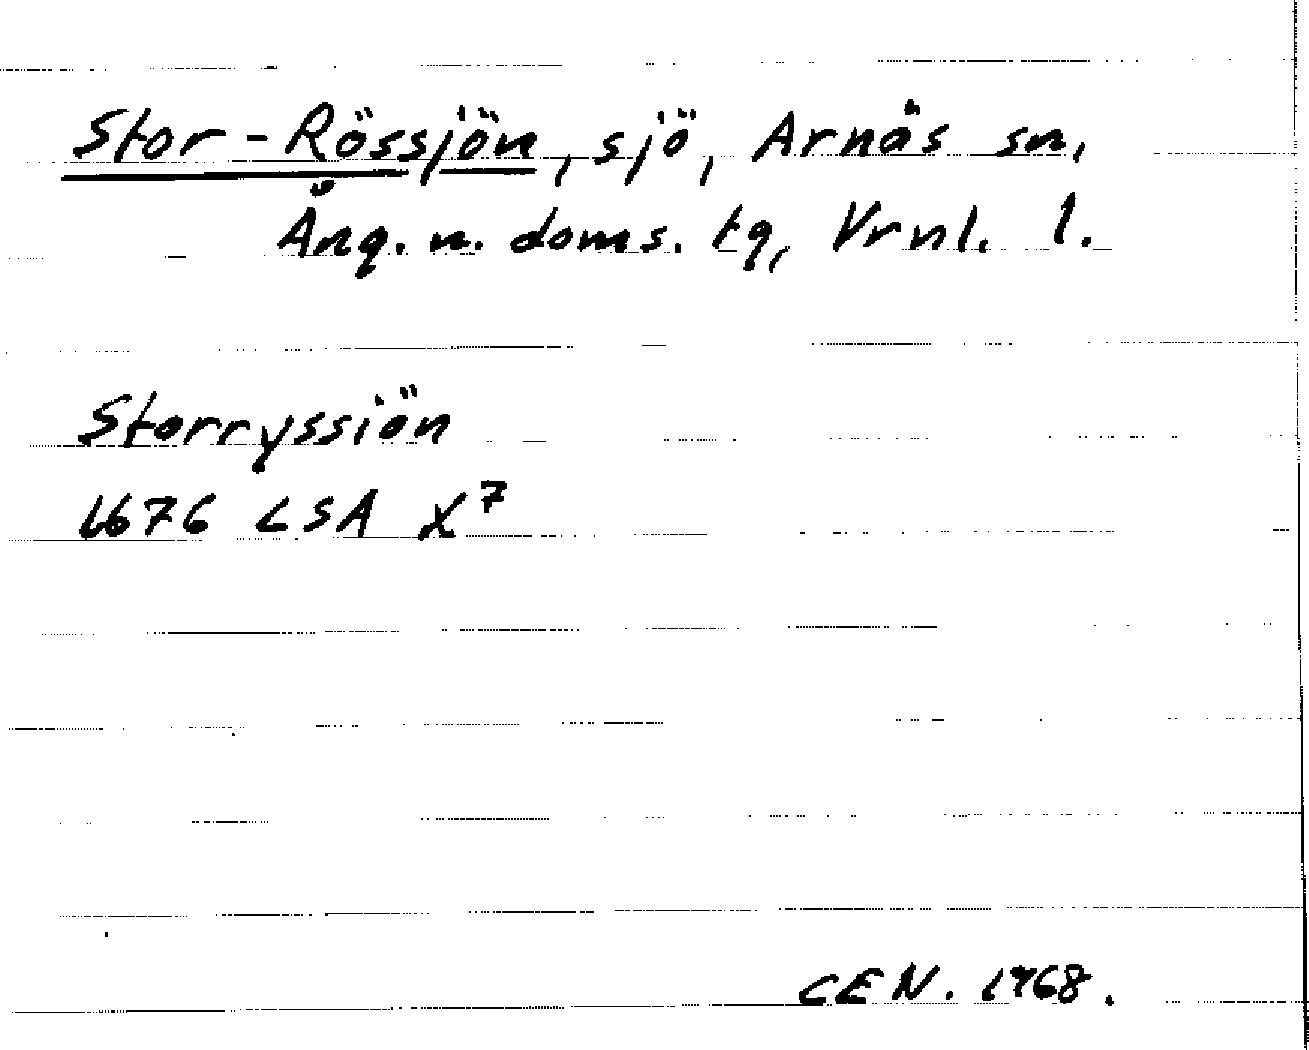 Stor-Rössjön, sjö, Arnäs sn,
Ång. n. doms. tg, Vrnl. l.
Storryssiön
1676 LSA X7
CEN. 1968.